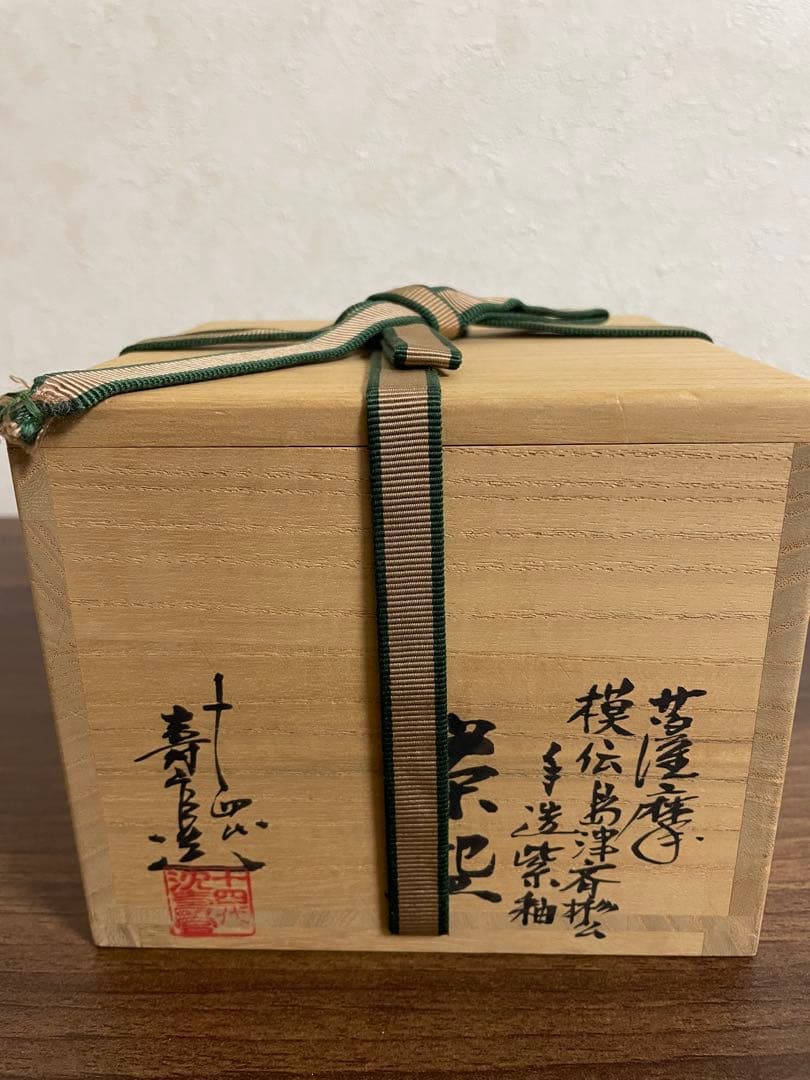 薩摩
模伝島津斉彬公
手造紫釉
茶盌
十四代
寿官造
十四代
沈壽官